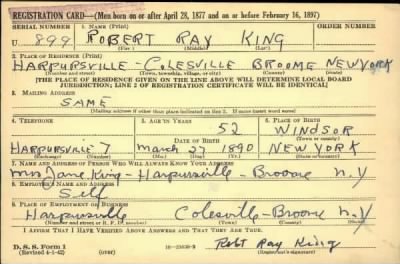 REGISTRATION CARD—(Men born on or after April 28, 1877 and on or before February 16, 1897)
SERIAL NUMBER 1. NAME (Print) ORDER NUMBER
U 899 ROBERT RAY KING
(First) (Middle) (Last)
2. PLACE OF RESIDENCE (Print)
HARPURSVILLE - COLESVILLE BROOME NEW YORK
(Number and street) (Town, township, village, or city) (County) (State)
[THE PLACE OF RESIDENCE GIVEN ON THE LINE ABOVE WILL DETERMINE LOCAL BOARD
JURISDICTION; LINE 2 OF REGISTRATION CERTIFICATE WILL BE IDENTICAL]
3. MAILING ADDRESS
SAME
[Mailing address if other than place indicated on line 2. If same insert word same]
4. TELEPHONE 5. AGE IN YEARS 6. PLACE OF BIRTH
52 WINDSOR
DATE OF BIRTH (Town or county)
HARPURSVILLE 7 March 27 1890 NEW YORK
(Exchange) (Number) (Mo.) (Day) (Yr.) (State or country)
7. NAME AND ADDRESS OF PERSON WHO WILL ALWAYS KNOW YOUR ADDRESS
Mrs Jane King - Harpursville - Broome N.Y
8. EMPLOYER'S NAME AND ADDRESS
Self
9. PLACE OF EMPLOYMENT OR BUSINESS
Harpursville Colesville - Broome N.Y
(Number and street or R. F. D. number) (Town) (County) (State)
I AFFIRM THAT I HAVE VERIFIED ABOVE ANSWERS AND THAT THEY ARE TRUE.
D. S. S. Form 1
(Revised 4-1-42) (over)
Robt Ray King
(Registrant's signature)